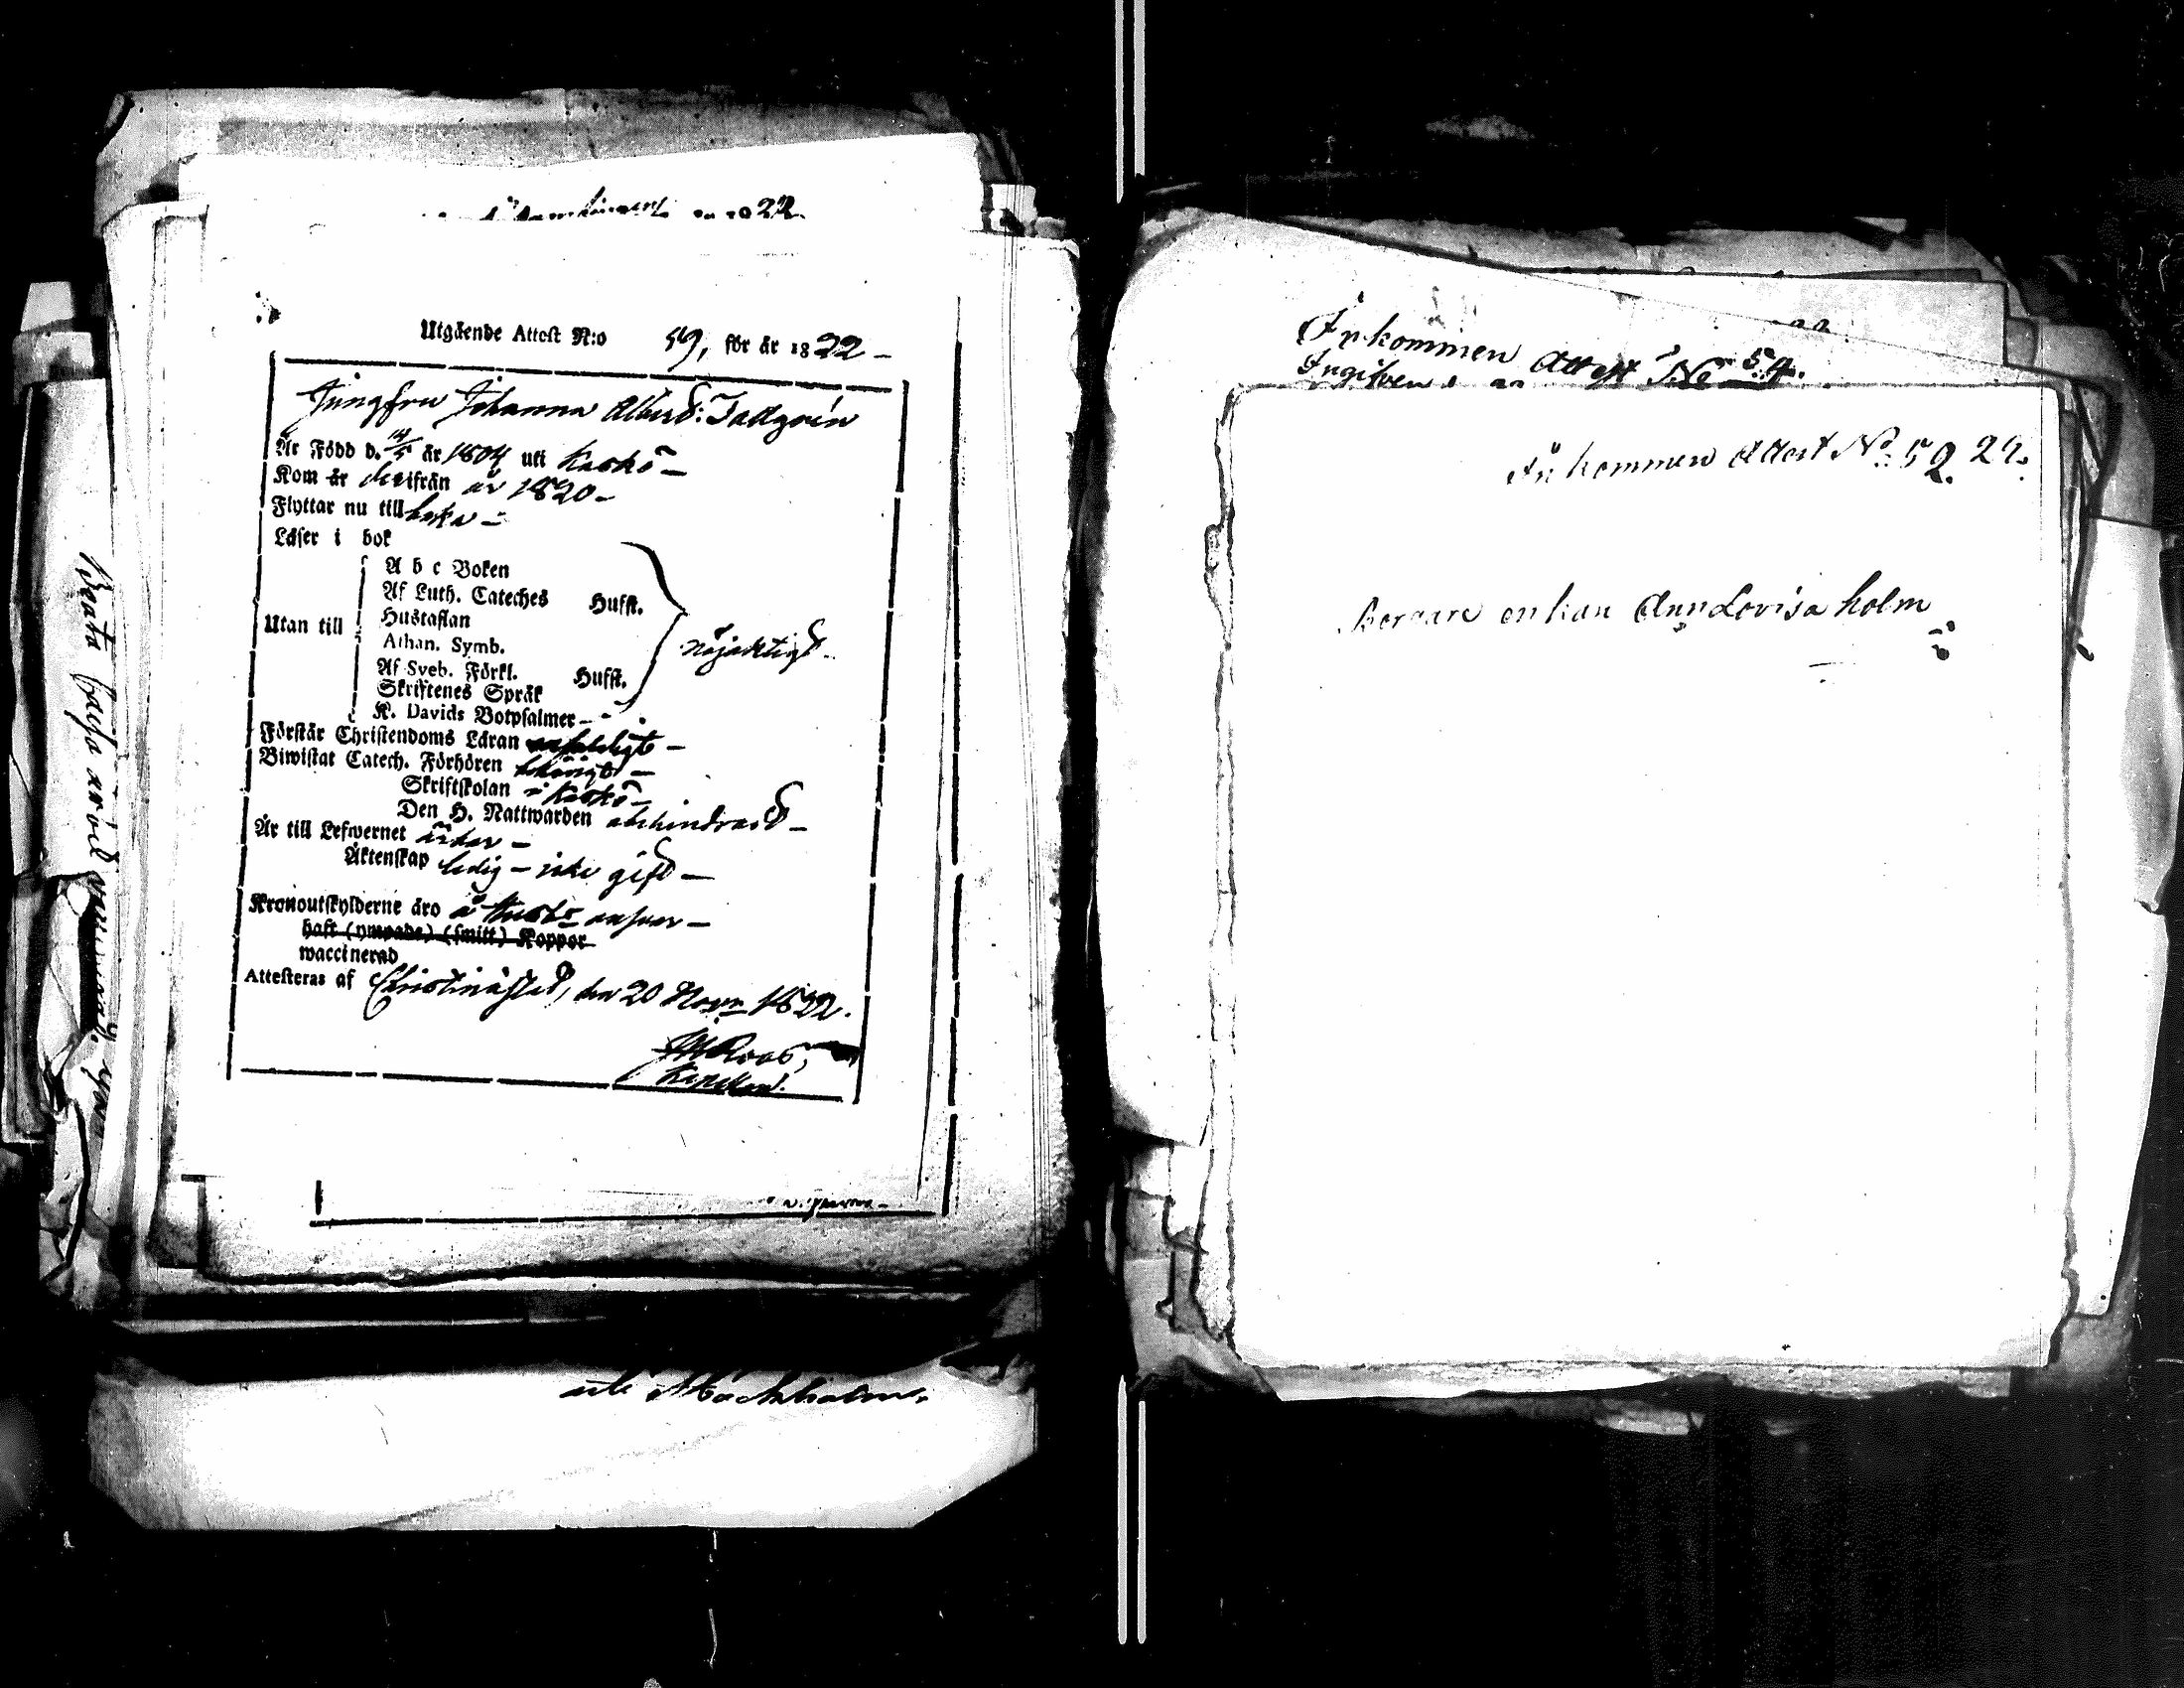 22
Utgående Attest N:o 59, för år 1822 –
Jungfru Johanna Albert: Tallgrén
Är Född d. 14/5 år 1804 uti Kaskö –
Kom år därifrån år 1820 –
Flyttar nu till
Läser i bok
Utan till
A b c Boken
Af Luth. Cateches Husst.
Hustaflan
Athan. Symb.
Af Sveb. Förkl. Husst.
Skriftenes Språk
K. Davids Botpsalmer –
nöjaktigt –
Förstår Christendoms Läran enfaldigt –
Biwistat Catech. Förhören behörigt –
Skriftskolan i Kaskö –
Den H. Nattwarden obehindrad –
Är till Lefwernet ärbar –
Äktenskap ledig – icke gift –
Kronoutskylderne äro å ansvar –
haft (ympade) (smitt) Koppor
waccinerad
Attesteras af Christinæstad, den 20 Novr 1822.
JM Roos,
uti Stockholm.
Beata
Inkommen Attest No 54.
Ingifven
Inkommen Attest No: 52. 22.
Borgare enkan Ann Lovisa holm